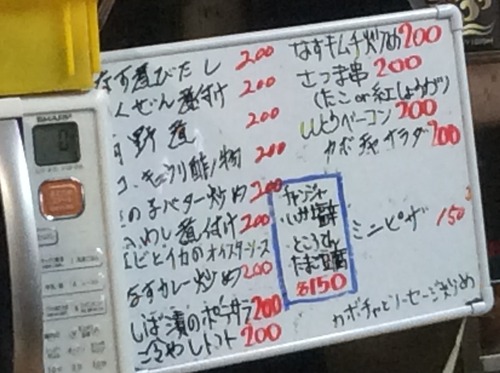 なす煮びたし 200
ぜん煮付け 200
野煮 200
キュウリ酢ノ物 200
の子バター炒め 200
いわし煮付け 200
エビとイカのオイスターソース
なすカレー炒め 200
しば漬のポテサラ 200
冷やしトマト 200
なすキムチ炒め 200
さつま串 200
(たこor紅しょうが)
ベーコン 200
カボチャサラダ 200
チャンジャ
いか塩辛
ところてん
たまご豆腐
各150
ミニピザ 150
カボチャとソーセージ炒め
SHARP
0